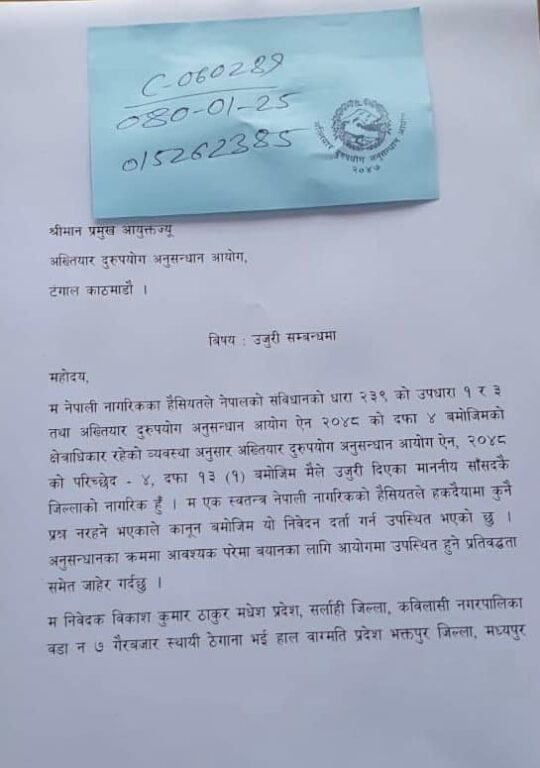 C-060289
080-01-25
015262385
अख्तियार दुरुपयोग अनुसन्धान आयोग
२०४७
श्रीमान प्रमुख आयुक्तज्यू
अख्तियार दुरुपयोग अनुसन्धान आयोग,
टंगाल काठमाडौ ।
बिषय : उजुरी सम्बन्धमा
महोदय,
म नेपाली नागरिकका हैसियतले नेपालको संविधानको धारा २३९ को उपधारा १ र ३
तथा अख्तियार दुरुपयोग अनुसन्धान आयोग ऐन २०४८ को दफा ४ बमोजिमको
क्षेत्राधिकार रहेको व्यवस्था अनुसार अख्तियार दुरुपयोग अनुसन्धान आयोग ऐन, २०४८
को परिच्छेद - ४, दफा १३ (१) बमोजिम मैले उजुरी दिएका माननीय साँसदकै
जिल्लाको नागरिक हुँ । म एक स्वतन्त्र नेपाली नागरिकको हैसियतले हकदैयामा कुनै
प्रश्न नरहने भएकाले कानून बमोजिम यो निवेदन दर्ता गर्न उपस्थित भएको छु ।
अनुसन्धानका क्रममा आबश्यक परेमा बयानका लागि आयोगमा उपस्थित हुने प्रतिवद्धता
समेत जाहेर गर्दछु ।
म निवेदक विकाश कुमार ठाकुर मधेश प्रदेश, सर्लाही जिल्ला, कविलासी नगरपालिका
वडा न ७ गैरबजार स्थायी ठेगाना भई हाल वाग्मति प्रदेश भक्तपुर जिल्ला, मध्यपुर